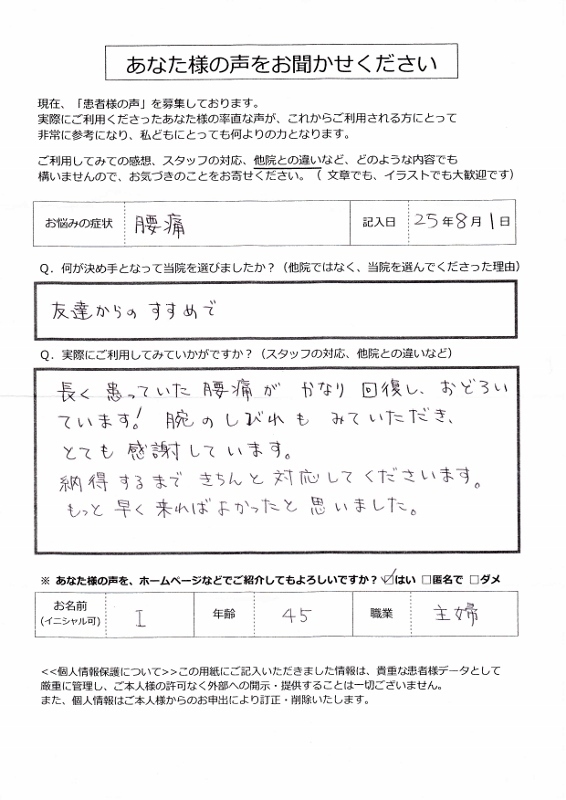 あなた様の声をお聞かせください
現在、「患者様の声」を募集しております。
実際にご利用くださったあなた様の率直な声が、これからご利用される方にとって
非常に参考になり、私どもにとっても何よりの力となります。
ご利用してみての感想、スタッフの対応、他院との違いなど、どのような内容でも
構いませんので、お気づきのことをお寄せください。（ 文章でも、イラストでも大歓迎です）
お悩みの症状 腰痛 記入日 25年8月1日
Q．何が決め手となって当院を選びましたか？（他院ではなく、当院を選んでくださった理由）
友達からのすすめで
Q．実際にご利用してみていかがですか？（スタッフの対応、他院との違いなど）
長く患っていた腰痛がかなり回復し、おどろい
ています！腕のしびれもみていただき、
とても感謝しています。
納得するまできちんと対応してくださいます。
もっと早く来ればよかったと思いました。
※ あなた様の声を、ホームページなどでご紹介してもよろしいですか？ ☑はい □匿名で □ダメ
お名前 I 年齢 45 職業 主婦
(イニシャル可)
<<個人情報保護について>>この用紙にご記入いただきました情報は、貴重な患者様データとして
厳重に管理し、ご本人様の許可なく外部への開示・提供することは一切ございません。
また、個人情報はご本人様からのお申出により訂正・削除いたします。